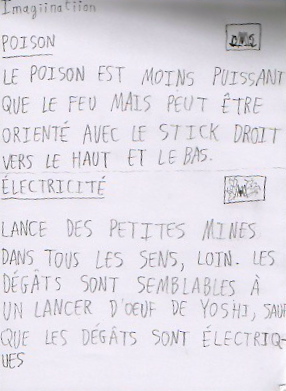 Imagiinatiion
POISON
LE POISON EST MOINS PUISSANT
QUE LE FEU MAIS PEUT ÊTRE
ORIENTÉ AVEC LE STICK DROIT
VERS LE HAUT ET LE BAS.
ÉLECTRICITÉ
LANCE DES PETITES MINES
DANS TOUS LES SENS, LOIN. LES
DÉGÂTS SONT SEMBLABLES À
UN LANCER D'OEUF DE YOSHI, SAUF
QUE LES DÉGÂTS SONT ÉLECTRIQ-
UES